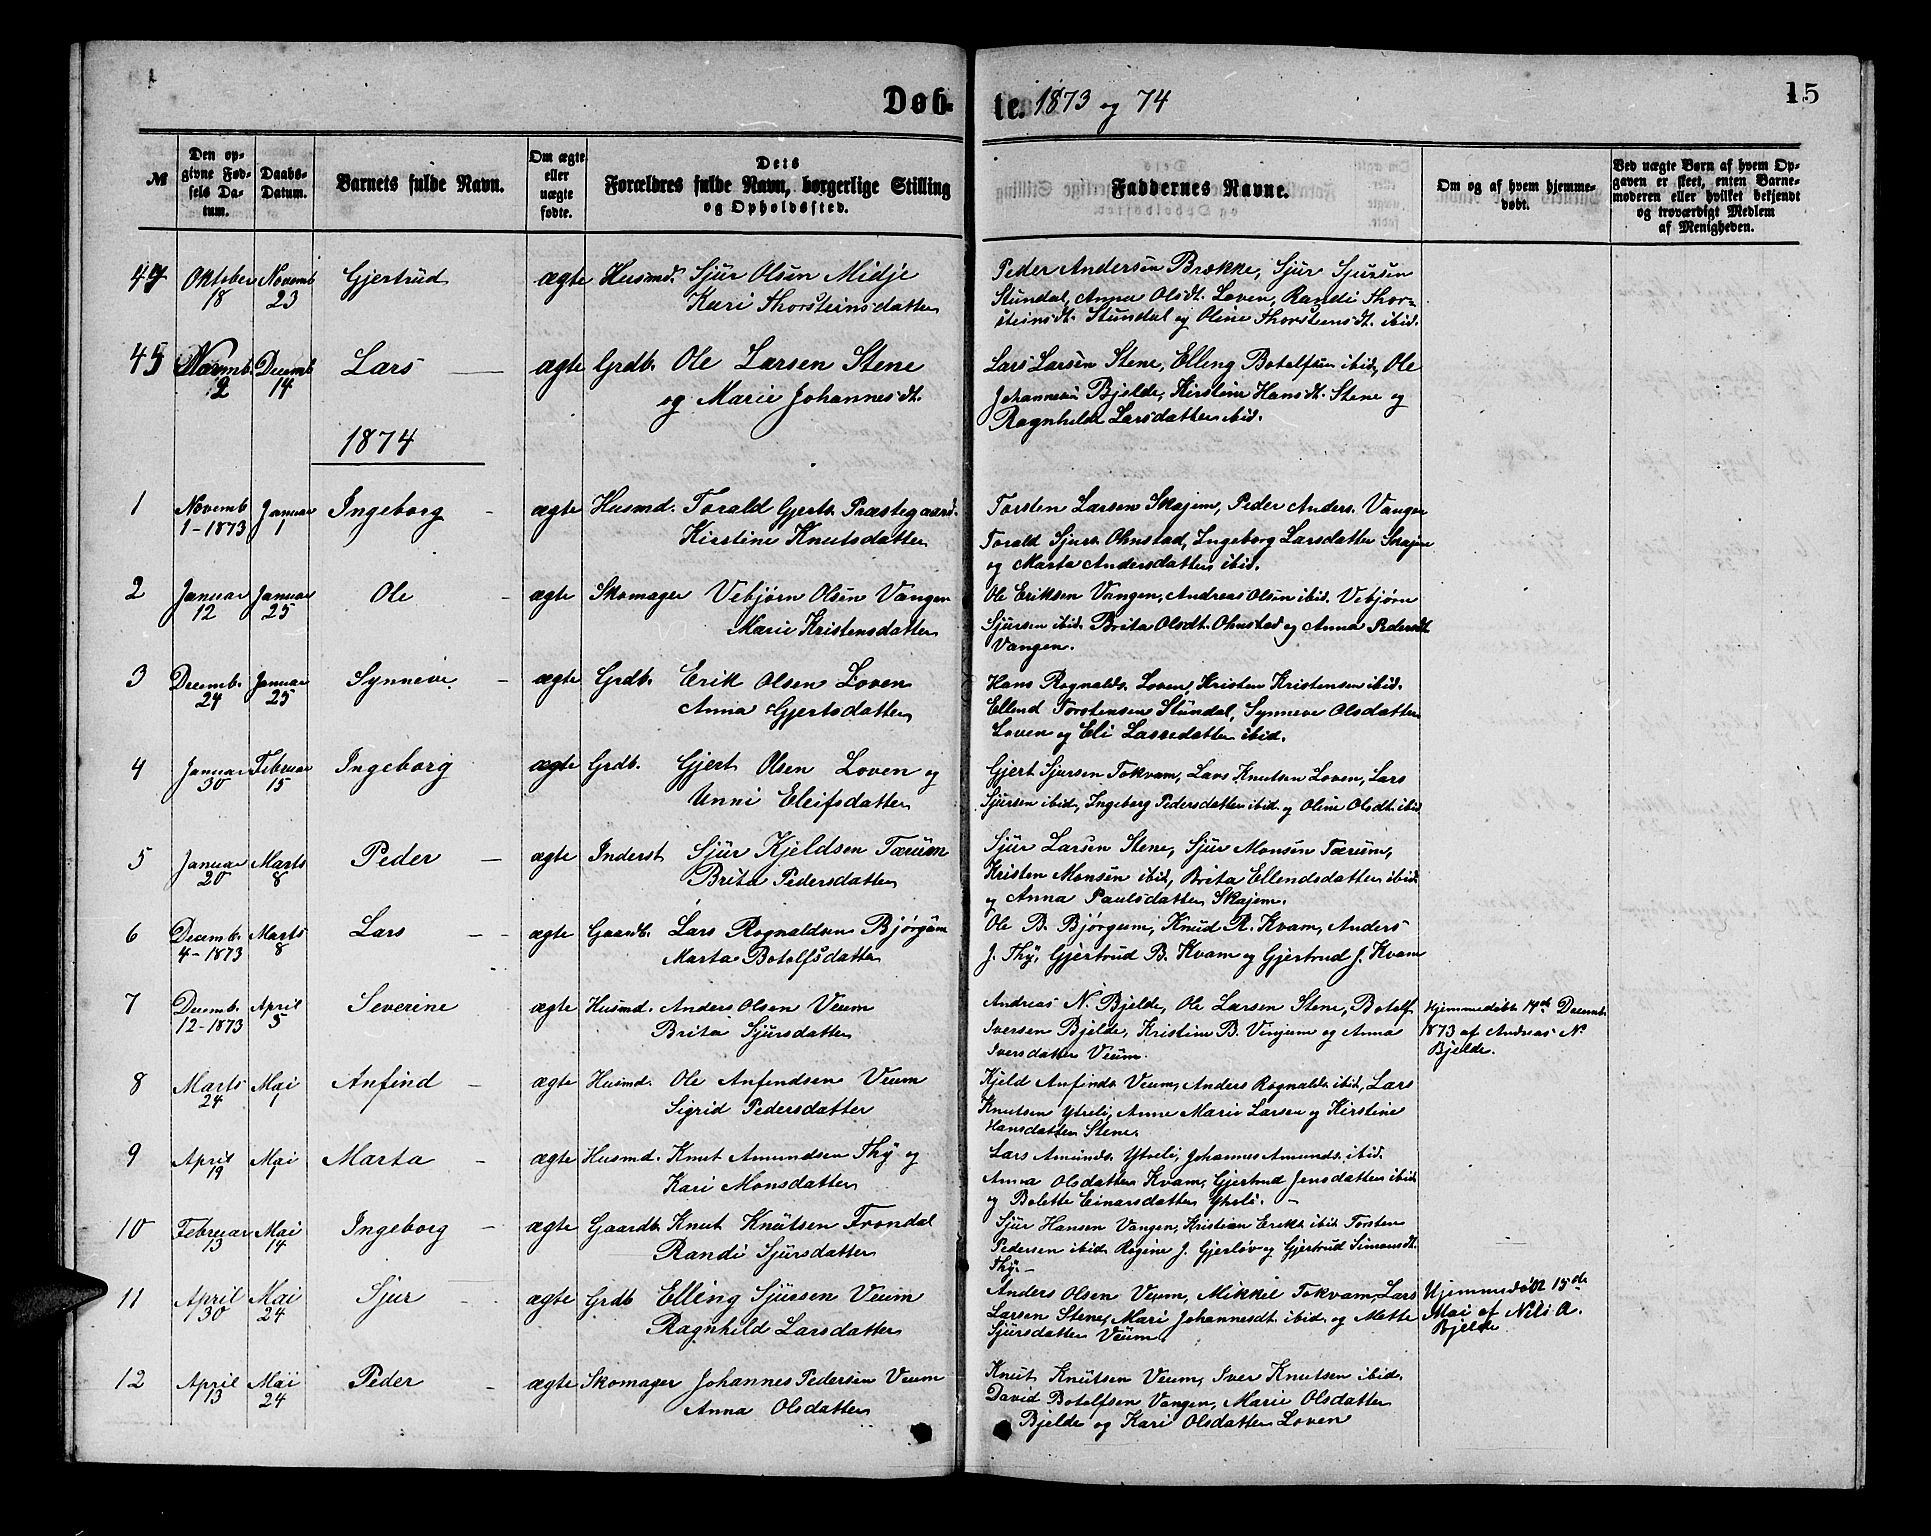 Døb- te. 1873 og 74
15
№
Den op-
givne Fød-
sels Da-
tum.
Daabs-
Datum.
Barnets fulde Navn.
Om ægte
eller
uægte
fødte.
Dets
Forældres fulde Navn, borgerlige Stilling
og Opholdssted.
Faddernes Navne.
Om og af hvem hjemme-
døbt.
Ved uægte Børn af hvem Op-
gaven er skeet, enten Barne-
moderen eller hvilket bekjendt
og troværdigt Medlem
af Menigheden.
44 Oktober 18 Novemb 23 Gjertrud ægte Husmd. Sjur Olsen Midje
Kari Thorsteinsdatter
Peder Andersen Brække, Sjur Sjursen
Stundal, Anna Olsdt. Loven, Randi Thor-
steinsdt. Stundal og Oline Thorsteinsdt. ibid.
45 Novemb. 2 Decemb 14 Lars ægte Grdb. Ole Larsen Stene
og Marie Johannesdt.
Lars Larsen Stene, Elling Botolfsen ibid, Ole
Johannesen Bjelde, Kirstine Hansdt. Stene og
Ragnhilde Larsdatter ibid.
1874
1 Novemb 1-1873 Januar 1 Ingeborg - ægte Husmd. Torald Gjerts. Præstegaard.
Kirstine Knutsdatter
Torsten Larsen Skajem, Peder Anders. Vangen
Torald Sjurs. Ohnstad, Ingeborg Larsdatter Skajem
og Marta Andersdatter ibid.
2 Januar 12 Januar 25 Ole - ægte Skomager Vebjørn Olsen Vangen
Marie Kristensdatter
Ole Eriksen Vangen, Andreas Olsen ibid. Vebjørn
Sjursen ibid. Brita Olsdt. Ohnstad og Anna Pedersdt.
Vangen.
3 Decemb. 24 Januar 25 Synneve - ægte Grdb. Erik Olsen Loven
Anna Gjertsdatter
Hans Rognalds. Loven, Kristen Kristensen ibid.
Ellend Torstensen Stundal, Synneve Olsdatter
Loven og Eli Lassedatter ibid.
4 Januar 30 Februar 15 Ingeborg ægte Grdb. Gjert Olsen Loven og
Unni Eleifsdatter
Gjert Sjursen Tokvam, Lars Knutsen Loven, Lars
Sjursen ibid, Ingeborg Pedersdatter ibid. og Oline Olsdt. ibid
5 Januar 20 Marts 8 Peder - ægte Inderst Sjur Kjeldsen Tærum
Brita Pedersdatter
Sjur Larsen Stene, Sjur Monsen Tærum,
Kristen Monsen ibid, Brita Ellendsdatter ibid
og Anna Paulsdatter Skajem.
6 Decemb. 4-1873 Marts 8 Lars - ægte Gaardb. Lars Rognaldsen Bjørgum
Marta Botolfsdatter
Ole B. Bjørgum, Knud R. Kvam, Anders
J. Thy, Gjertrud B. Kvam og Gjertrud J. Kvam
7 Decemb. 12-1873 April 5 Severine ægte Husmd. Anders Olsen Veum
Brita Sjursdatter
Andreas N. Bjelde, Ole Larsen Stene, Botolf
Iversen Bjelde, Kristine B. Vinjum og Anna
Iversdatter Veum.
Hjemmedøbt 14de Decemb.
1873 af Andreas N.
Bjelde.
8 Marts 24 Mai 1 Anfind - ægte Husmd. Ole Anfendsen Veum
Sigrid Pedersdatter
Kjeld Anfinds. Veum, Anders Rognalds. ibid, Lars
Knutsen Ytreli, Anne Marie Larsen og Kirstine
Hansdatter Stene.
9 April 19 Mai 1 Marta - ægte Husmd. Knut Amundsen Thy og
Kari Monsdatter
Lars Amunds. Ytreli, Johannes Amunds. ibid.
Anna Olsdatter Kvam, Gjertrud Jensdatter ibid
og Bolette Einarsdatter Ytreli. -
10 Februar 13 Mai 14 Ingeborg - ægte Gaardb. Knut Knutsen Frondal
Randi Sjursdatter
Sjur Hansen Vangen, Kristian Eriks. ibid Torsten
Pedersen ibid, Regine J. Gjerløv og Gjertrud Simonsdt.
Thy. -
11 April 30 Mai 24 Sjur - ægte Grdb Elling Sjursen Veum
Ragnhild Larsdatter
Anders Olsen Veum, Mikkel Tokvam, Lars
Larsen Stene, Mari Johannesdt. ibid. og Mette
Sjursdatter Veum.
Hjemmedøbt 15de
Mai af Nils A.
Bjelde
12 April 13 Mai 24 Peder - ægte Skomager Johannes Pedersen Veum
Anna Olsdatter
Knut Knutsen Veum, Iver Knutsen ibid.
David Botolfsen Vangen, Marie Olsdatter
Bjelde og Kari Olsdatter Loven